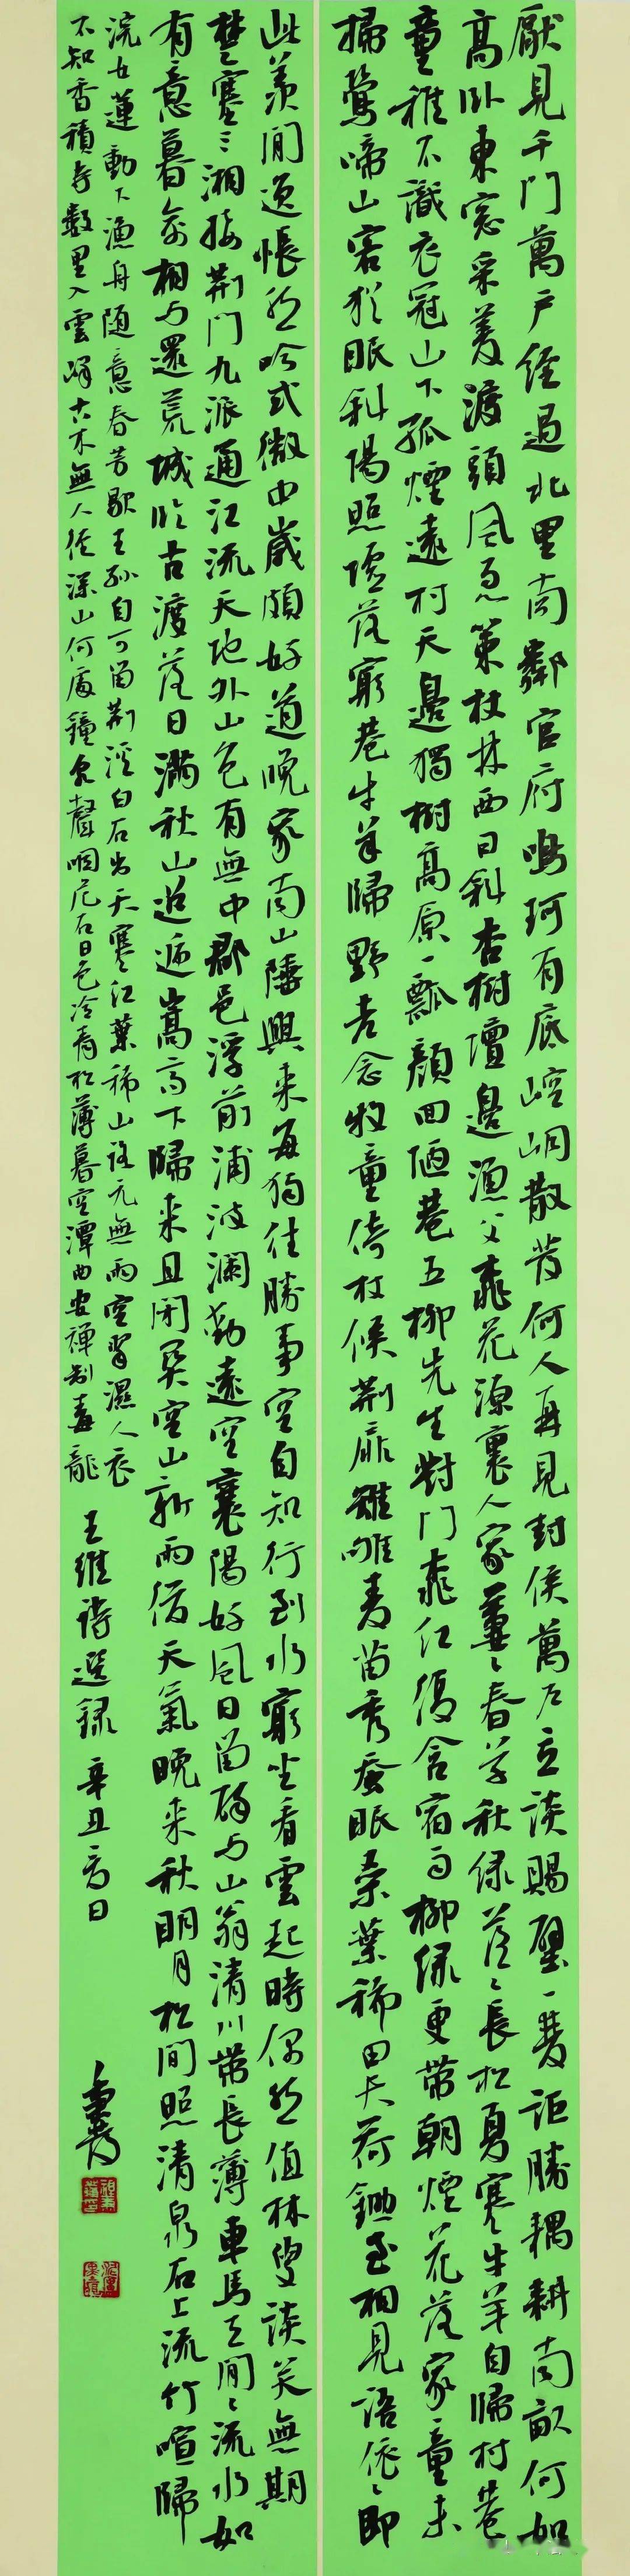 厭見千門萬户經過北里南鄰官府鳴珂有底崆峒散髮何人再見封侯萬户立談賜璧一雙詎勝耦耕南畝何如
高卧東窗采菱渡頭風急策杖林西日斜杏樹壇邊漁父桃花源裏人家萋々春草秋綠落々長松夏寒牛羊自歸村巷
童稚不識衣冠山下孤煙遠村天邊獨樹高原一瓢顏回陋巷五柳先生對門桃紅復含宿雨柳綠更帶朝煙花落家童未
掃鶯啼山客猶眠斜陽照墟落窮巷牛羊歸野老念牧童倚杖候荆扉雉雊麥苗秀蠶眠桑葉稀田夫荷鋤至相見語依々即
此羨閒逸悵然吟式微中歲頗好道晚家南山陲興來每獨往勝事空自知行到水窮坐看雲起時偶然值林叟談笑無期
楚塞三湘接荆門九派通江流天地外山色有無中郡邑浮前浦波瀾動遠空襄陽好風日留醉與山翁清川帶長薄車馬去閒々流水如
有意暮禽相與還荒城臨古渡落日滿秋山迢遞嵩高下歸來且閉關空山新雨後天氣晚來秋明月松間照清泉石上流竹喧歸
浣女蓮動下漁舟隨意春芳歇王孫自可留荆溪白石出天寒紅葉稀山路元無雨空翠濕人衣
不知香積寺數里入雲峰古木無人徑深山何處鐘泉聲咽危石日色冷青松薄暮空潭曲安禪制毒龍
王維詩選録 辛丑